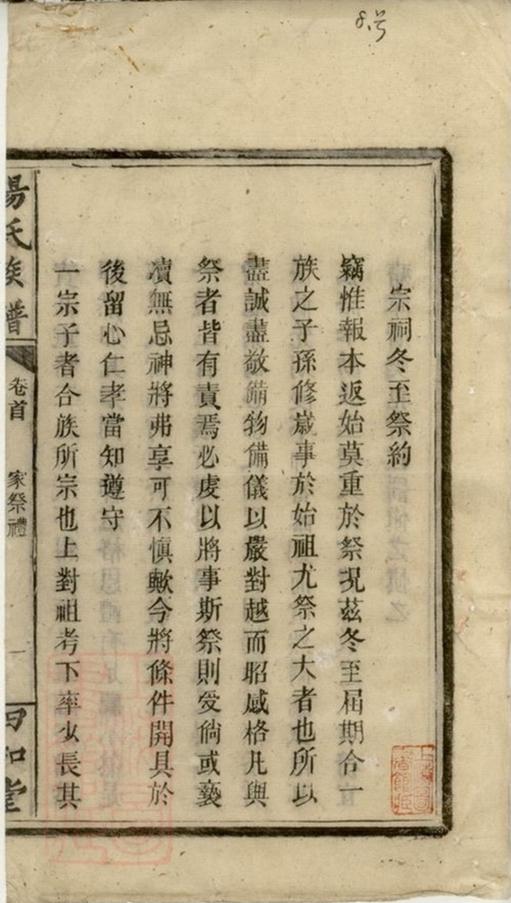 8号
宗祠冬至祭約
竊惟報本返始莫重於祭況茲冬至屆期合一
族之子孫修歲事於始祖尤祭之大者也所以
盡誠盡敬備物備儀以嚴對越而昭感格凡與
祭者皆有責焉必虔以將事斯祭則受倘或褻
凟無忌神將弗享可不慎歟今將條件開具於
後留心仁孝當知遵守
一宗子者合族所宗也上對祖考下率少長其
楊氏族譜
卷首
家祭禮
一